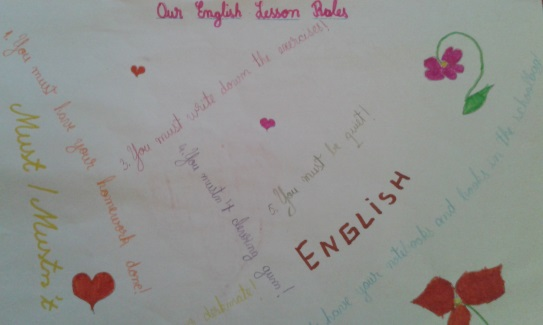 Our English Lesson Rules
1. You must have your homework done!
Must / Mustn't
3. You must write down the exercises!
4. You mustn't chewing gum!
5. You must be quiet!
ENGLISH
have your notebooks and books in the schoolbag!